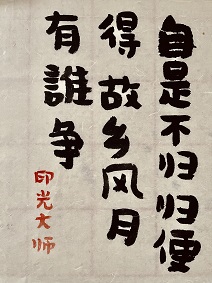 自是不归归便
得故乡风月
有誰争
印光大师